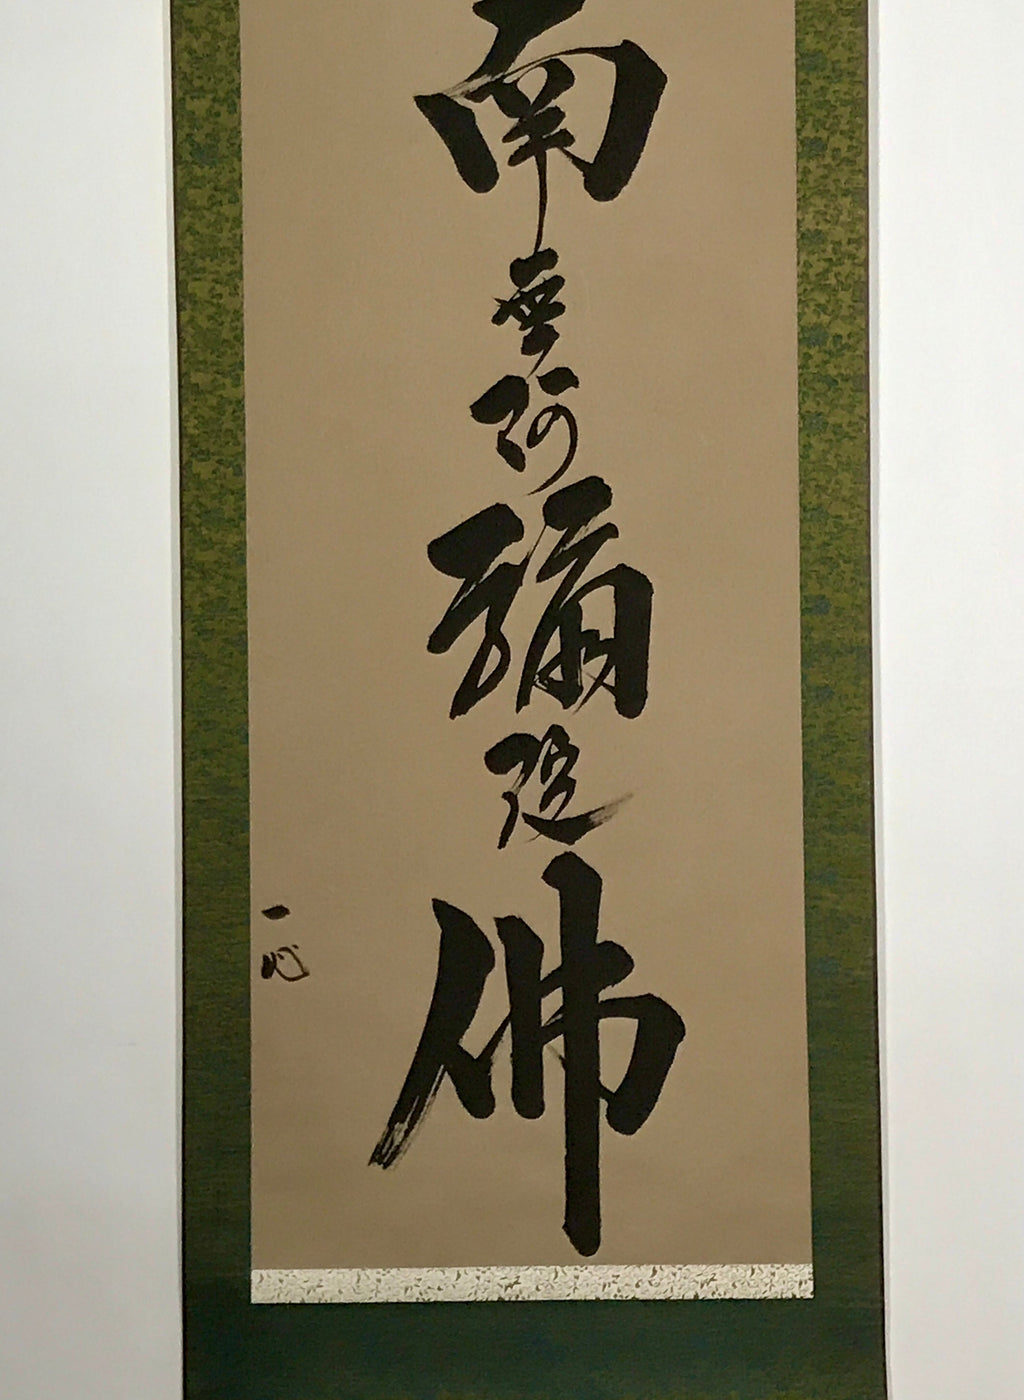 南無阿彌陀佛
一心